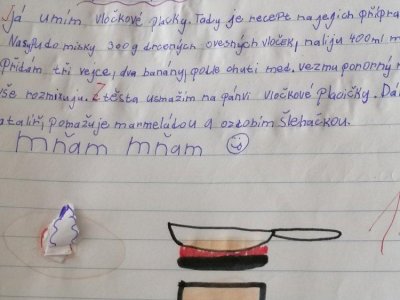 Já umím vločkové placky. Tady je recept na jejich přípra
Nasypu do misky 300g drobných ovesných vloček, naliju 400ml m
přidám tři vejce, dva banány, podle chuti med. vezmu ponorný m
vše rozmixuju. Z těsta usmažím na pánvi vločkové placičky. Dá
talíř, pomažuje marmeládou a ozdobím šlehačkou.
mňam mňam